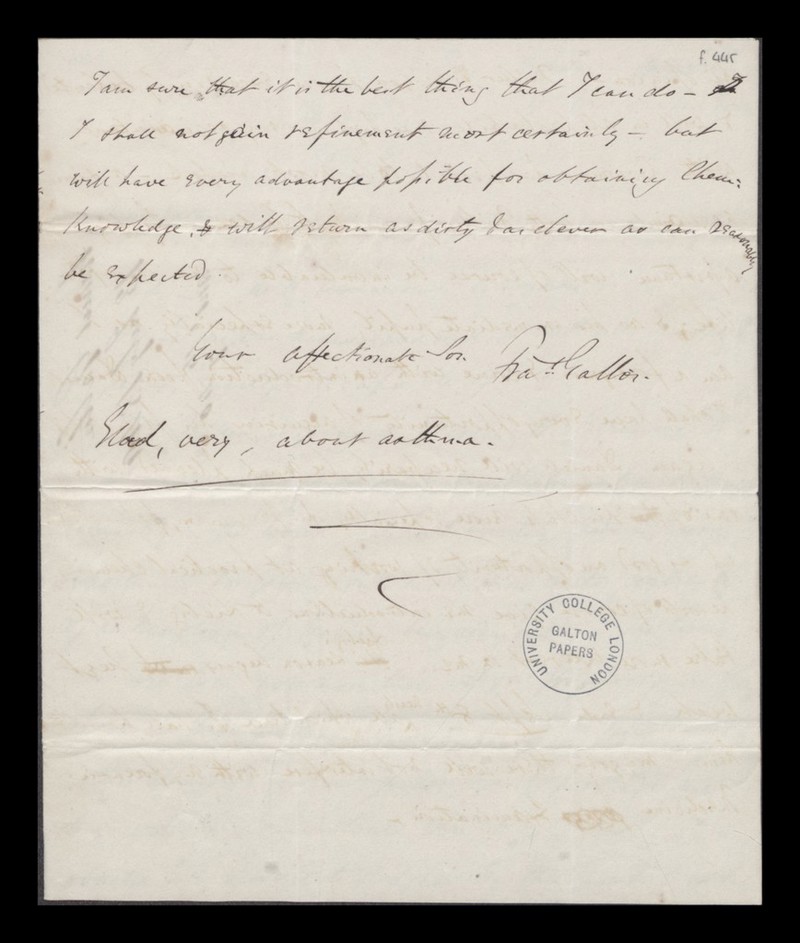 f. 445
I am sure that it is the best thing that I can do –
I shall not gain refinement most certainly – but
will have every advantage possible for obtaining Chem:
Knowledge, & will return as dirty & as clever as can reasonably
be expected.
Your affectionate Son
Fra.s Galton.
Glad, very, about asthma.
UNIVERSITY COLLEGE LONDON
GALTON
PAPERS